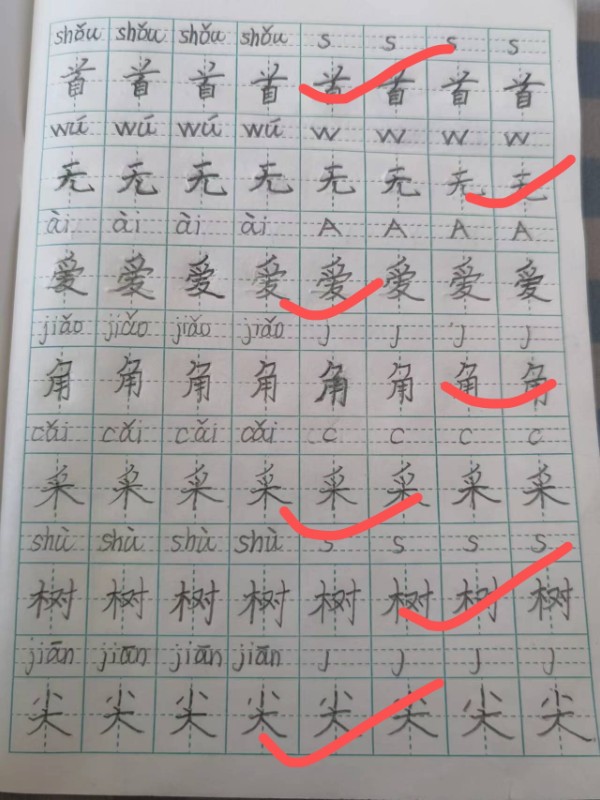 shǒu shǒu shǒu shǒu s s s s
首 首 首 首 首 首 首 首
wú wú wú wú w w w w
无 无 无 无 无 无 无 无
ài ài ài ài A A A A
爱 爱 爱 爱 爱 爱 爱 爱
jiǎo jiǎo jiǎo jiǎo J J J J
角 角 角 角 角 角 角 角
cǎi cǎi cǎi cǎi c c c c
采 采 采 采 采 采 采 采
shù shù shù shù s s s s
树 树 树 树 树 树 树 树
jiān jiān jiān jiān J J J J
尖 尖 尖 尖 尖 尖 尖 尖